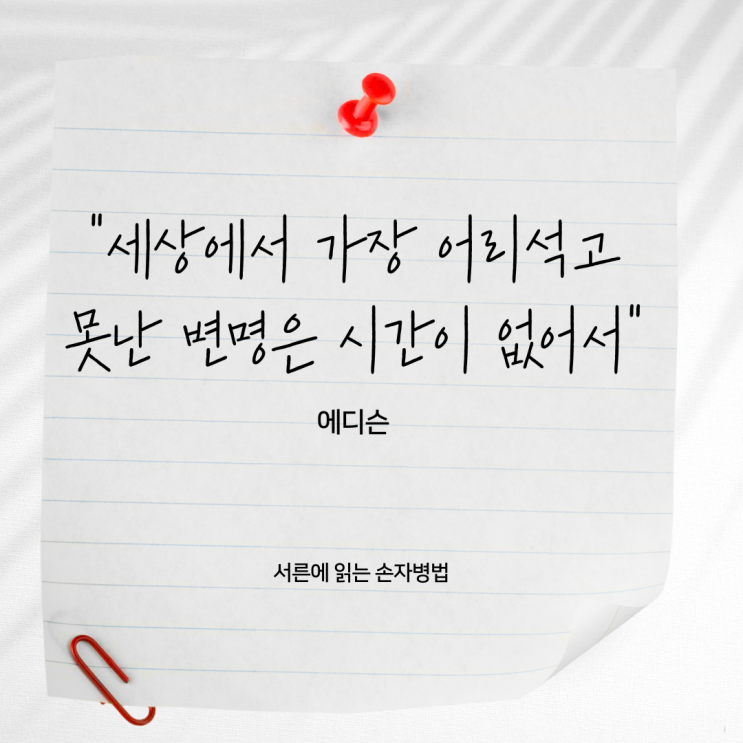 "세상에서 가장 어리석고
못난 변명은 시간이 없어서"
에디슨
서른에 읽는 손자병법